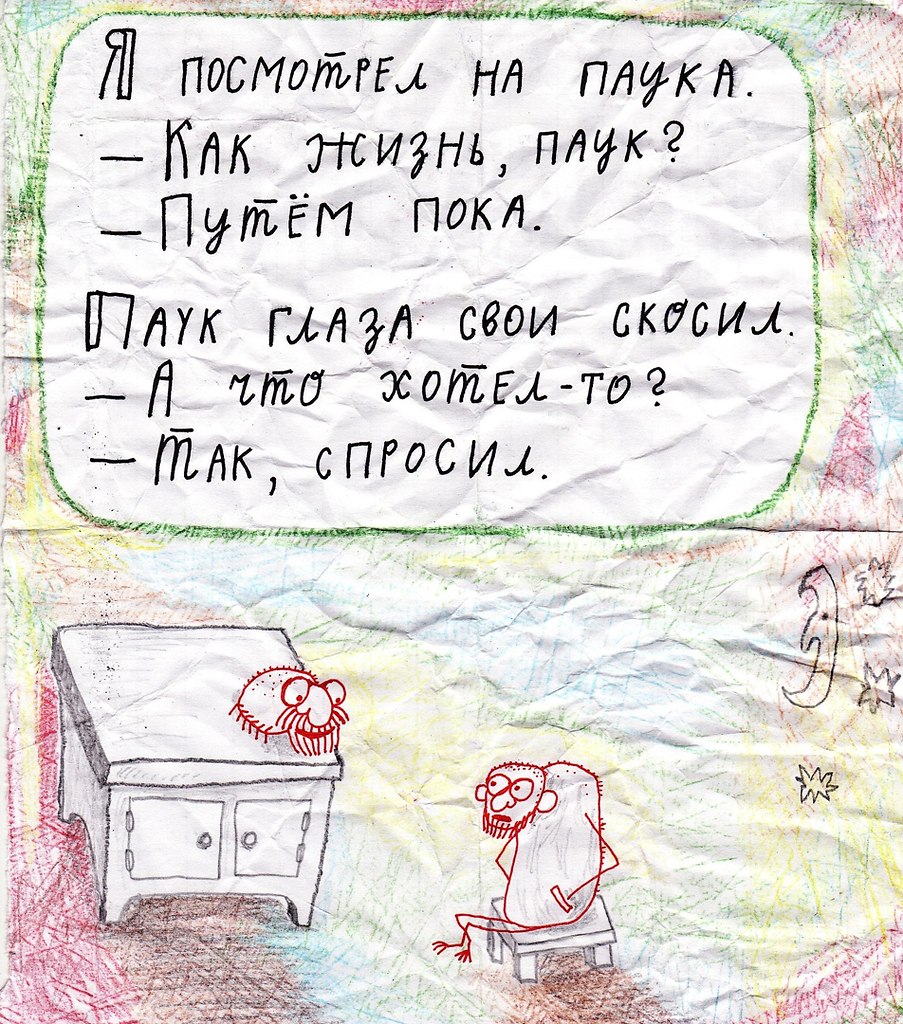 Я посмотрел на паука.
— Как жизнь, паук?
— Путём пока.
Паук глаза свои скосил.
— А что хотел-то?
— Так, спросил.